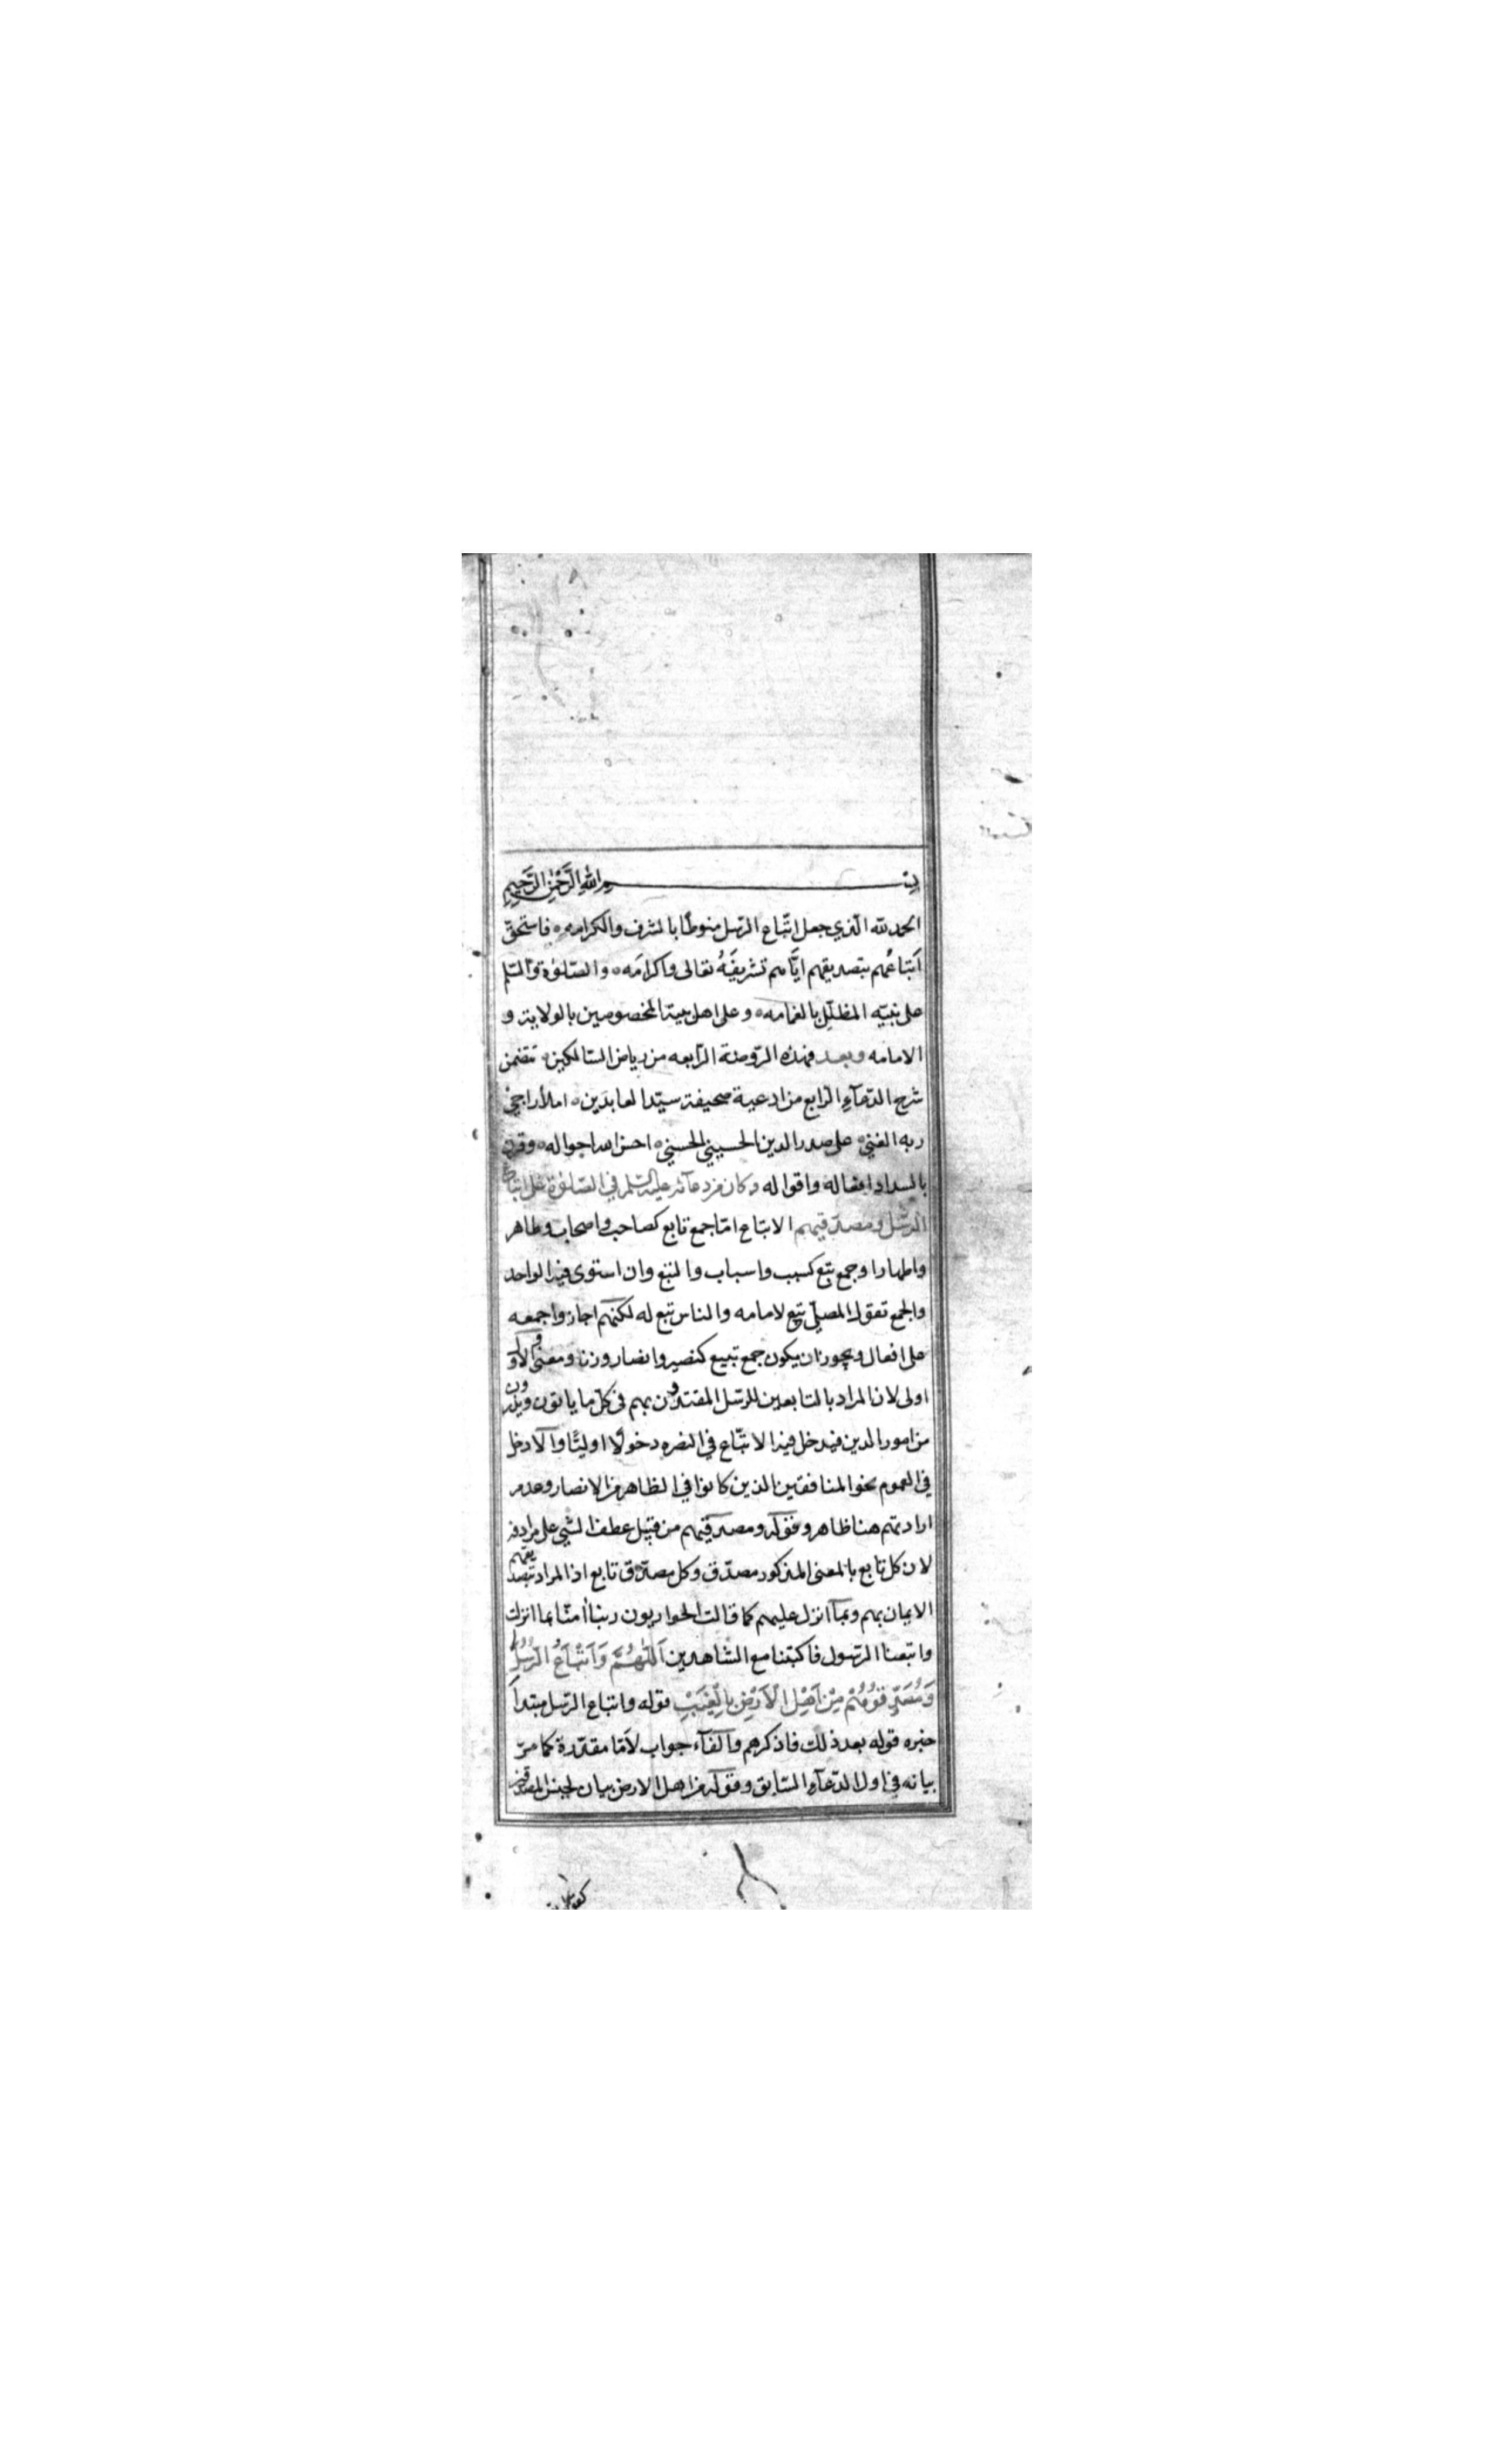 بسم الله الرحمن الرحيم
الحمد لله الذي جعل اتّباع الرسل منوطًا بالشرف والكرامه فاستحقّ
أتباعُهم بتصديقهم ايّاهم تشريفَهُ تعالى واكرامَه والصّلوٰة والسّلم
على نبيّه المظلّل بالغمامه وعلى اهل بيته المخصوصين بالولاية و
الامامه وبعد فهذه الرّوضة الرّابعه من رياض السّالكين تتضمن
شرح الدّعآءِ الرّابع من ادعية صحيفة سيّد العابدين املآء راجي
ربه الغني على صدر الدين الحسيني الحسني احسن الله احواله وقرن
بالسداد افعاله واقواله وكان من دعآئه عليه السّلم في الصّلوٰة على اتباع
الرّسل ومصدّقيهم الاتباع امّا جمع تابع كصاحب واصحاب وطاهر
واطهار او جمع تبع كسبب واسباب والتبع وان استوى فيه الواحد
والجمع تقول المصلّي تبع لامامه والناس تبع له لكنّهم اجازوا جمعه
على افعال ويجوز ان يكون جمع تبيع كنصير وانصار وزنا ومعنى والاول
اولى لان المراد بالتابعين للرّسل المقتدون بهم في كلّ ما ياتون ويذرون
من امور الدين فيدخل فيه الاتبّاع في النصره دخولًا اوليًّا والّا دخل
في العموم نحو المنافقين الذين كانوا في الظاهر من الانصار وعدم
ارادتهم هنا ظاهر وقوله ومصدّقيهم من قبيل عطف الشيى على مرادفه
لان كل تابع بالمعنى المذكور مصدّق وكل مصدّق تابع اذ المراد تبصديقهم
الايمان بهم وبمآ انزل عليهم كما قالت الحواريون ربنا أمنّا بما انزلت
واتبعنا الرّسول فاكتبنا مع الشاهدين اَللّٰهُمَّ وَاَتْبَاعُ الرُّسُلِ
وَمُصَدِّقُوهُمْ مِنْ اَهْلِ الْاَرْضِ بِالْغَيْبِ قوله واتباع الرّسل مبتدأ
خبره قوله بعد ذلك فاذكرهم والفآء جواب لأمّا مقدّرة كما مرّ
بيانه في اول الدّعآء السّابق وقوله من اهل الارض بيان لجنس المصدقين